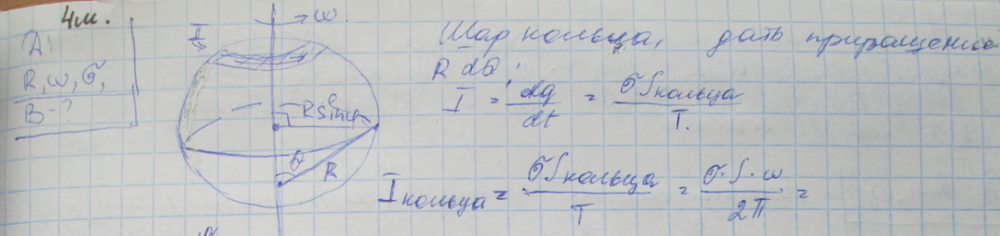 4м.
Д:
R, ω, σ,
B - ?
I
ω.
R sin φ
θ
R
Шар кольца, дать приращение
R dθ.
I = dq/dt = σSкольца/T.
Iкольца = σSкольца/T = σ·S·ω/2π =